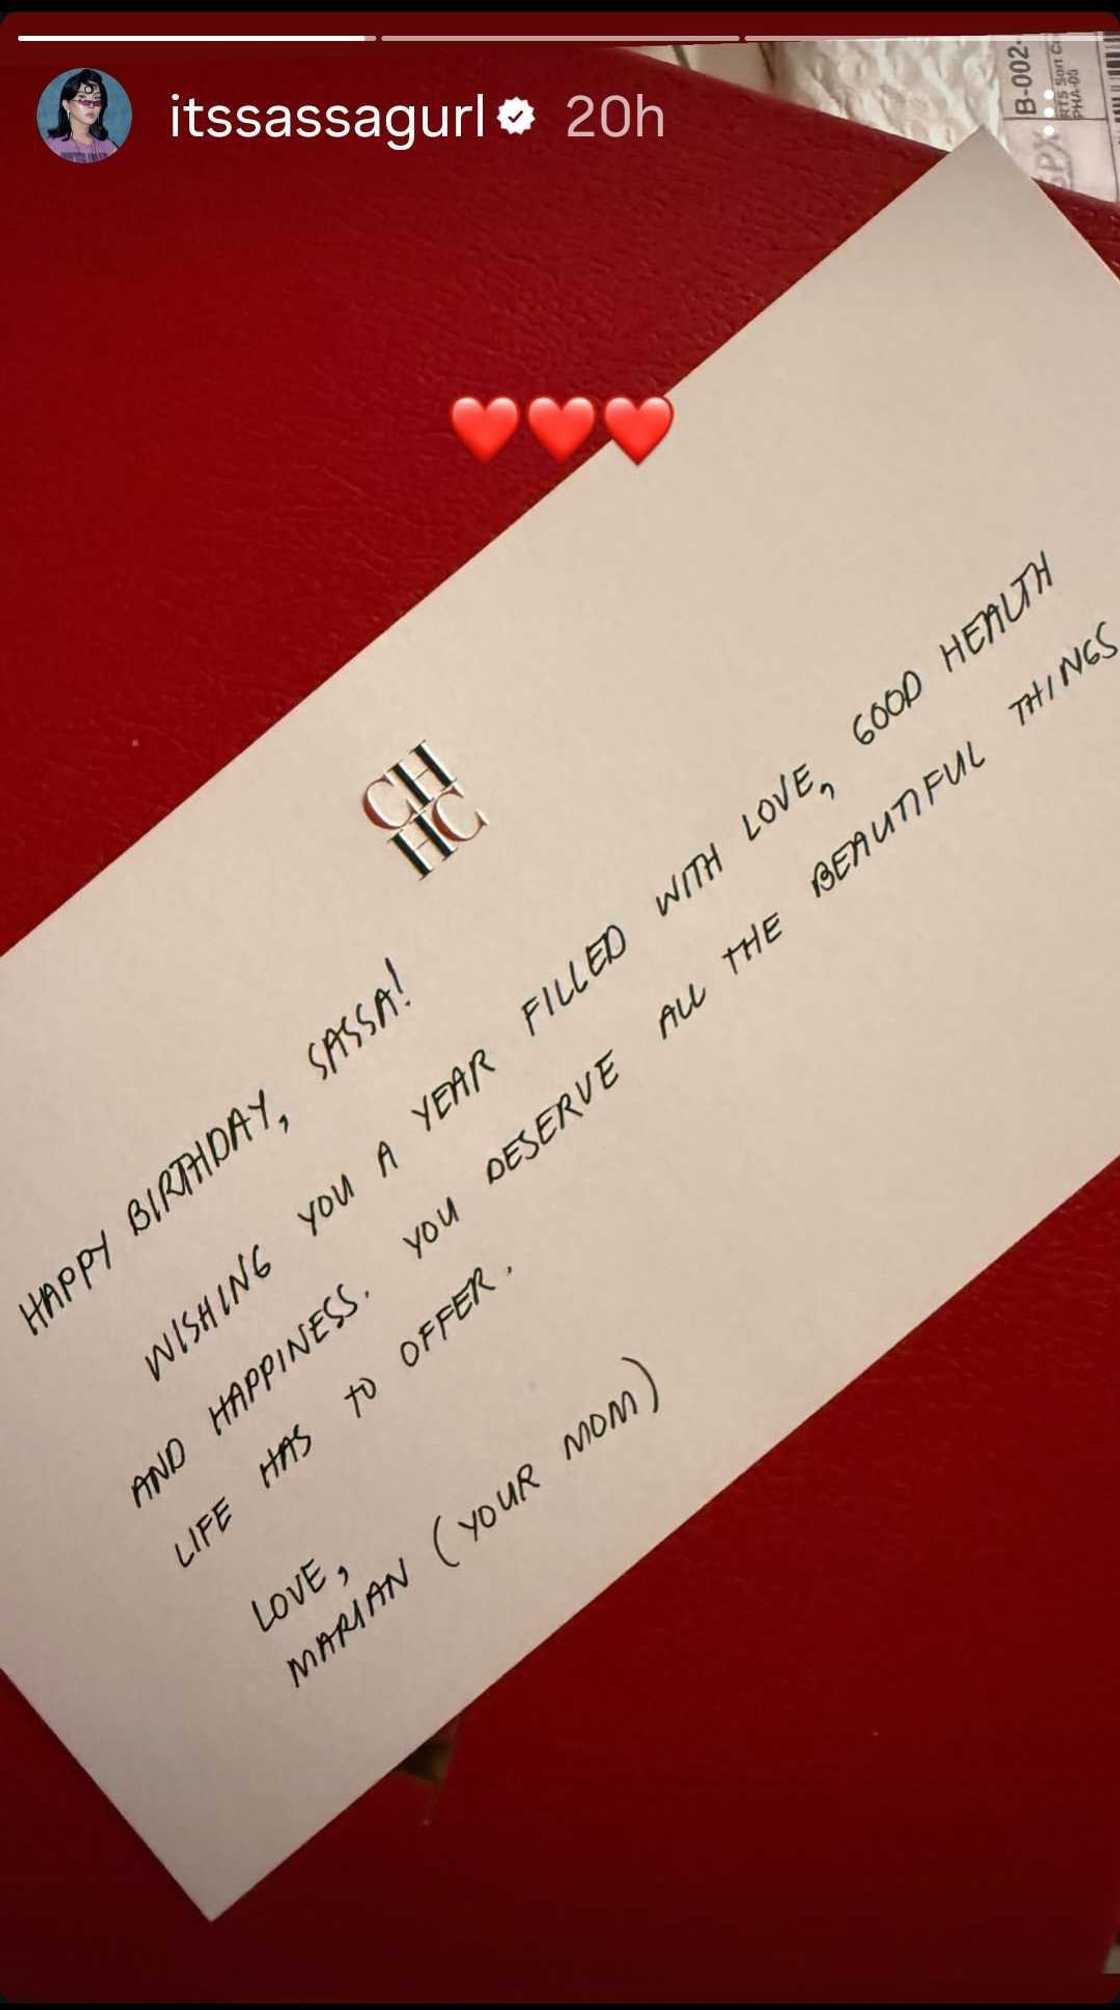 itssassagurl 20h
B-002-
RTS Sort Ce
PHA-03
SPX
CH
HC
HAPPY BIRTHDAY, SASSA!
WISHING YOU A YEAR FILLED WITH LOVE, GOOD HEALTH
AND HAPPINESS. YOU DESERVE ALL THE BEAUTIFUL THINGS
LIFE HAS TO OFFER.
LOVE,
MARIAN (YOUR MOM)